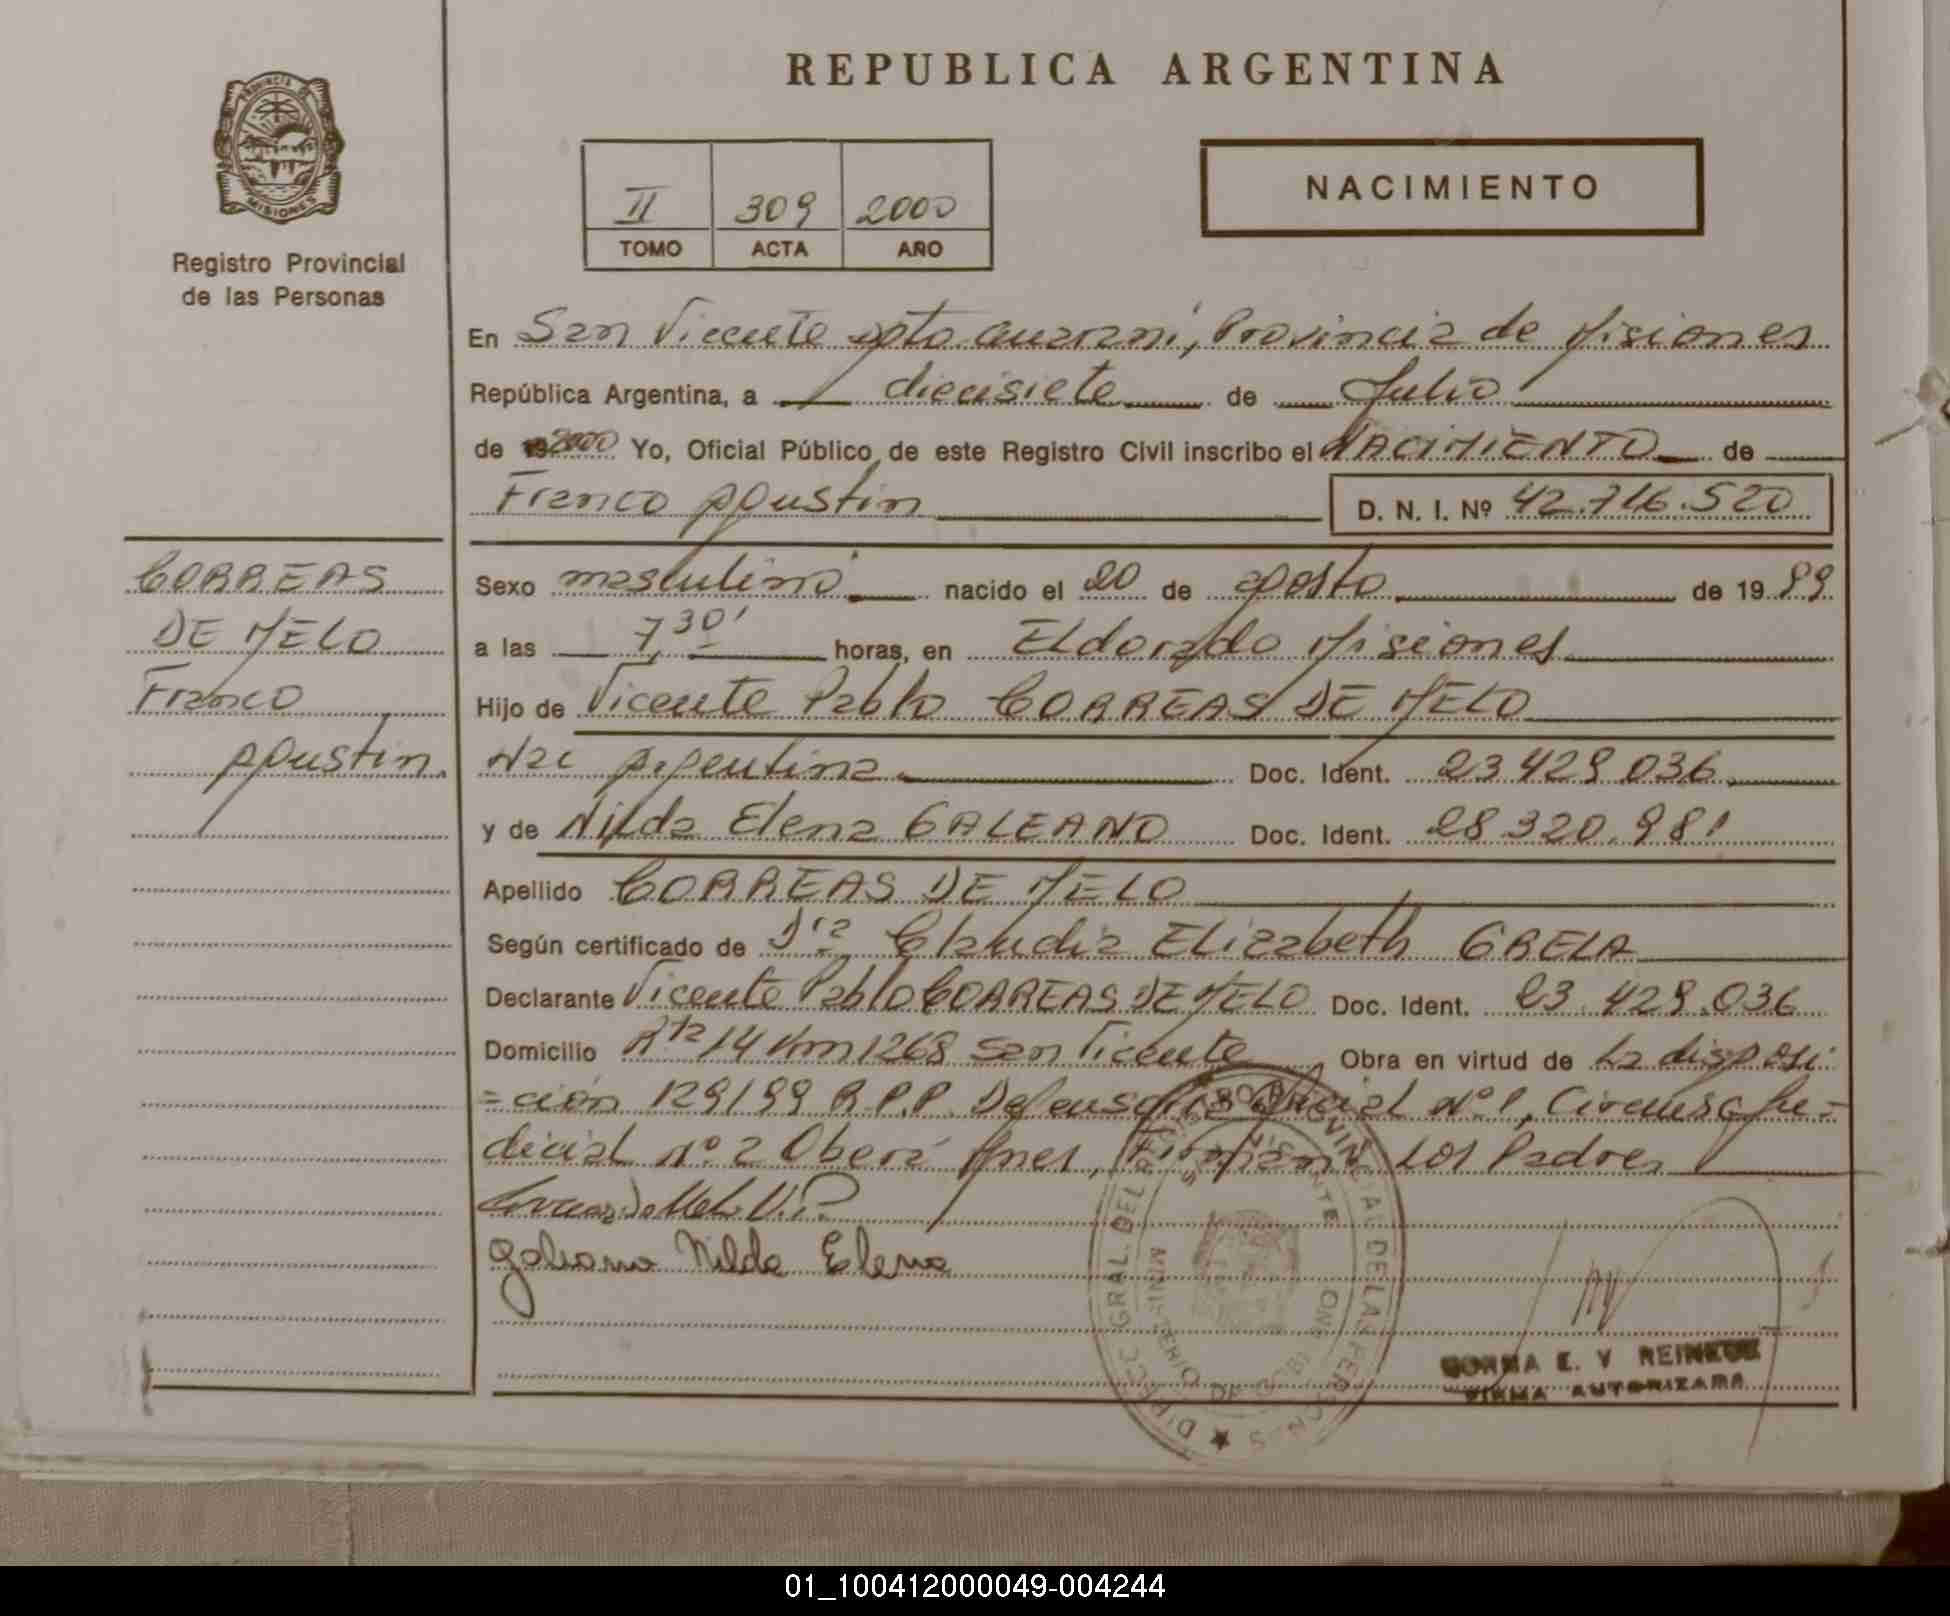 REPUBLICA ARGENTINA
PROVINCIA DE
MISIONES
Registro Provincial
de las Personas
II 309 2000
TOMO ACTA AÑO
NACIMIENTO
En San Vicente dpto Guarani, Provincia de Misiones
República Argentina, a diecisiete de Julio
de 2000 Yo, Oficial Público de este Registro Civil inscribo el NACIMIENTO de
Franco Agustin D. N. I. Nº 42.716.520
CORREAS
DE MELO
Franco
Agustin.
Sexo masculino nacido el 20 de agosto de 19 99
a las 7,30' horas, en Eldorado Misiones
Hijo de Vicente Pablo CORREAS DE MELO
Nac Argentina Doc. Ident. 23 429 036
y de Nilda Elena GALEANO Doc. Ident. 28.320.981
Apellido CORREAS DE MELO
Según certificado de Dra Claudia Elizabeth GRELA
Declarante Vicente Pablo CORREAS DE MELO Doc. Ident. 23.429.036
Domicilio Rta 14 Km 1268 San Vicente Obra en virtud de La disposi
=ción 129/99 R.P.P. Defensoria Oficial Nº 1, Circunsc Ju=
dicial nº 2 Oberá Mnes, Firman Los Padres
Correas De Melo V.P.
Galeano Nilda Elena
DIRECC. GRAL. DEL REGISTRO PROVINCIAL DE LAS PERSONAS
SAN VICENTE
MINISTERIO DE GOBIERNO
NORMA E. V REINEKE
FIRMA AUTORIZADA
01_100412000049-004244